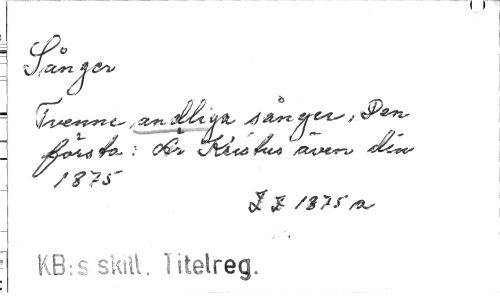 Sånger
Tvenne andliga sånger, Den
första: Är Kristus även din
1875
Z Z 1875 a
KB:s skill. Titelreg.